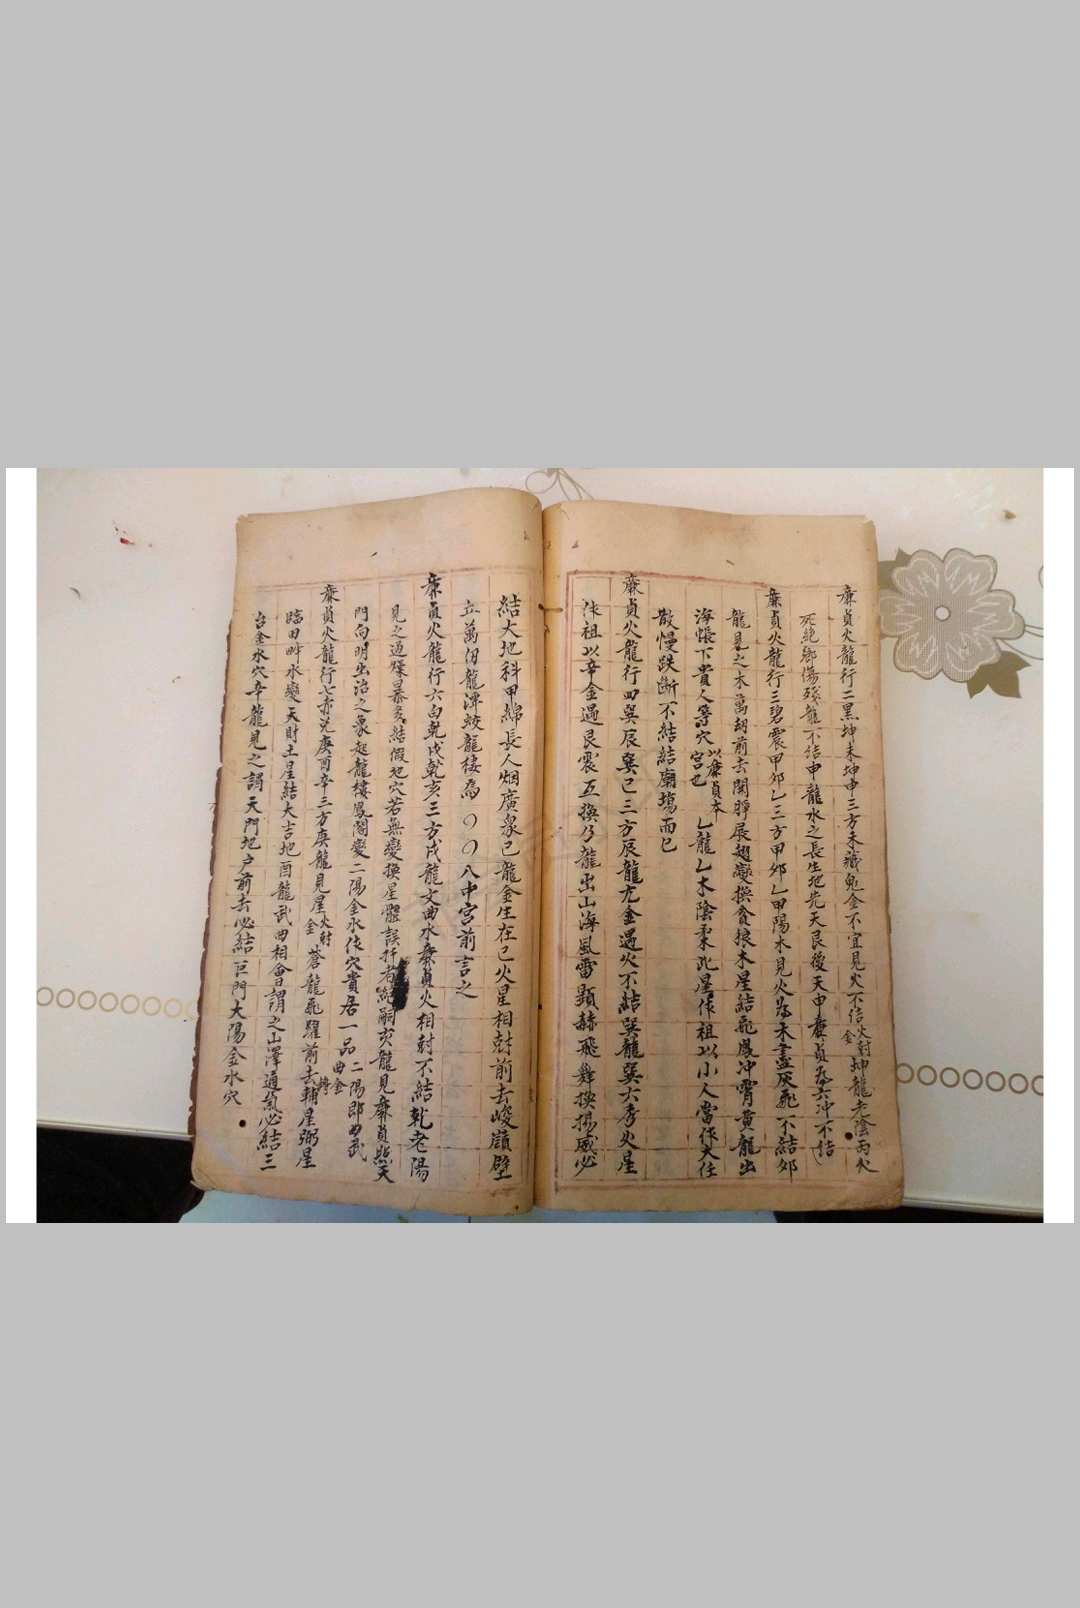 廉貞火龍行二黑坤未坤申三方未藏鬼金不宜見火不結火尅金坤龍老陰丙火
死絕鄉傷殘龍不結申龍水之長生地先天艮後天申廉貞為六沖不結
廉貞火龍行三碧震甲卯乙三方甲卯乙甲陽木見火為木盡灰飛不結卯
龍見之木萬胡前去開睜展翅變換貪狼木星結飛鳳冲霄黃龍出
海悵下貴人等穴以廉貞本宮也乙龍乙木陰柔此星作祖以小人當作大任
散慢跌斷不結結廟塲而已
廉貞火龍行四巽辰巽巳三方辰龍亢金遇火不結巽龍巽大秀火星
作祖以辛金過艮震互換乃龍出山海風雷顯赫飛舞換揚威必
結大地科甲綿長人烟廣衆巳龍金生在巳火星相尅前去峻嶺壁
立萬仞龍潭蛟龍棲焉八中宮前言之
廉貞火龍行六白乾戌乾亥三方戌龍文曲水廉貞火相尅不結乾老陽
見之過燥暴多結假地穴若無變換星體誤扦者絕嗣亥龍見廉貞照天
門向明出治之象起龍樓鳳閣變二陽金水作穴貴居一品二陽即曲武曲金
廉貞火龍行七赤兌庚酉辛三方庚龍見星火尅金蒼龍飛躍前去轉輔星弼星
臨田畔水變天財土星結大吉地酉龍武曲相會謂之山澤通氣必結三
台金水穴辛龍見之謂天門地户前去必結巨門大陽金水穴